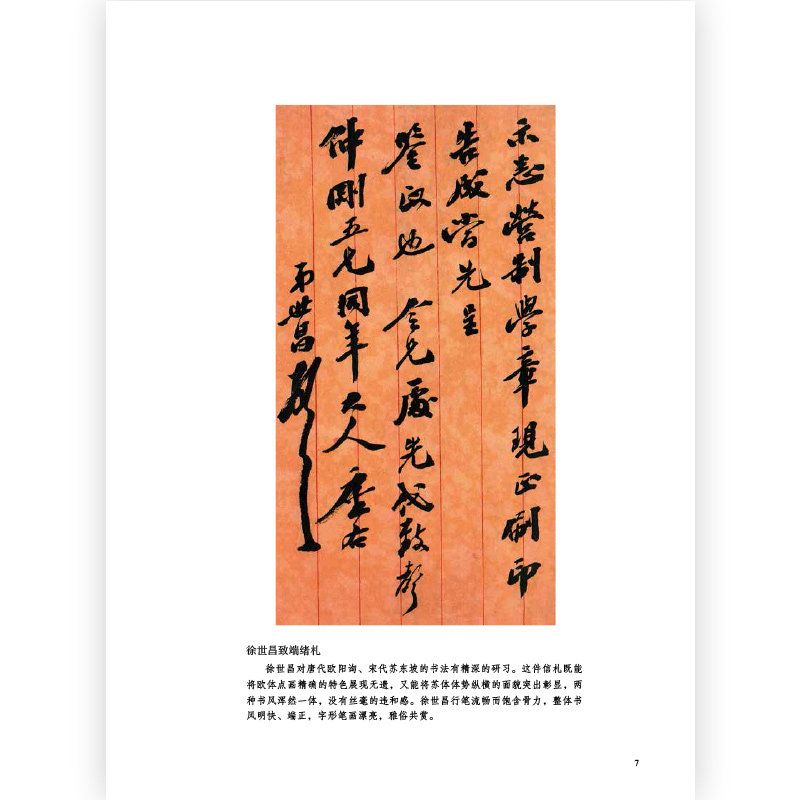 示悉營制學章現正刷印
告成當先呈
鑒政也 令兄處先代致聲
仲剛五兄同年大人座右
弟世昌
徐世昌致端绪札
徐世昌对唐代欧阳询、宋代苏东坡的书法有精深的研习。这件信札既能
将欧体点画精确的特色展现无遗,又能将苏体体势纵横的面貌突出彰显,两
种书风浑然一体,没有丝毫的违和感。徐世昌行笔流畅而饱含骨力,整体书
风明快、端正,字形笔画漂亮,雅俗共赏。
7